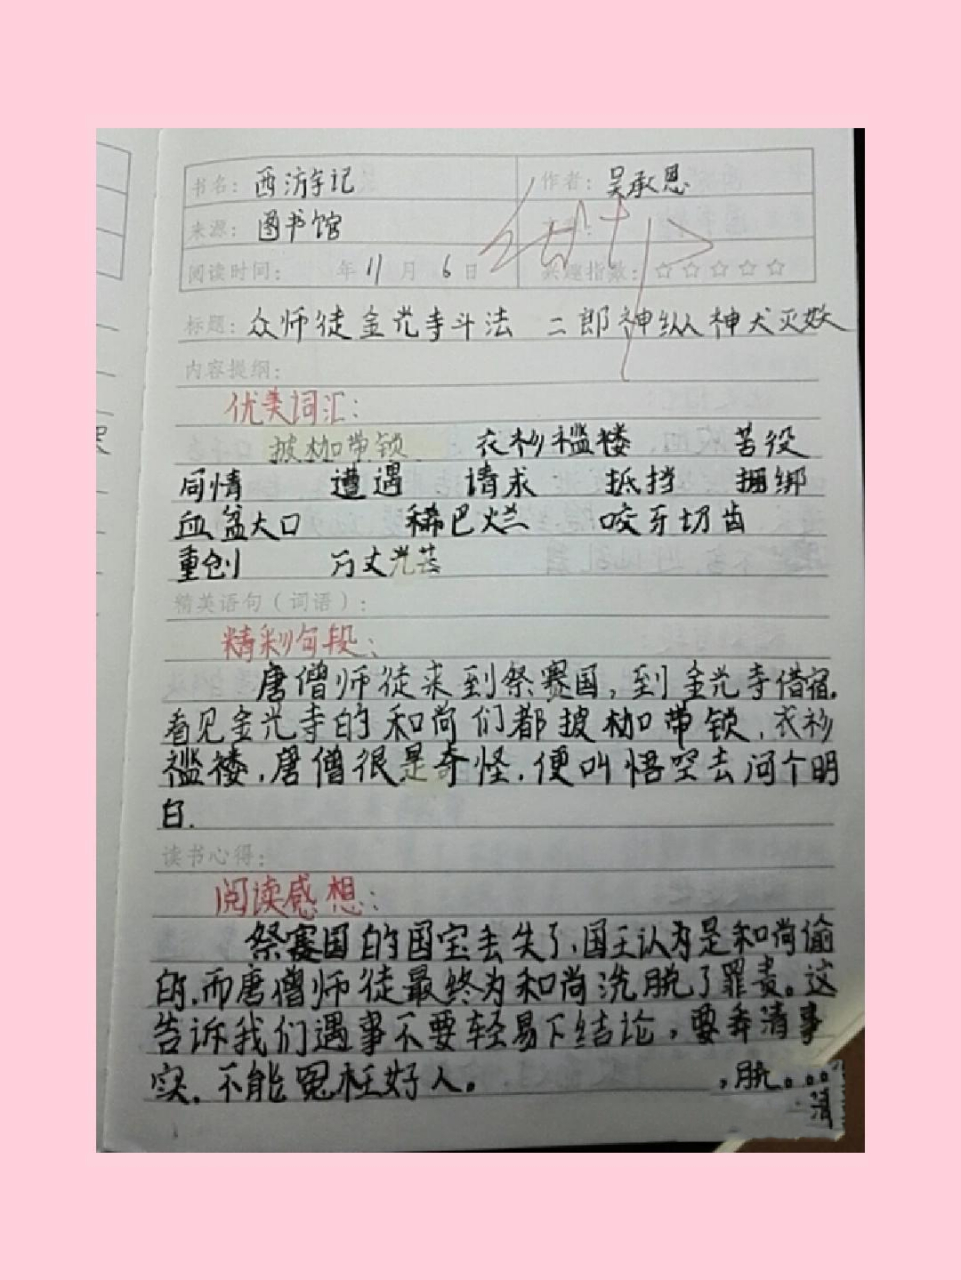 书名：西游记 作者：吴承恩
来源：图书馆
阅读时间： 年 11 月 6 日 兴趣指数：☆☆☆☆☆
标题：众师徒金光寺斗法 二郎神纵神犬灭妖
内容提纲：
优美词汇：
披枷带锁 衣衫褴楼 苦役
同情 遭遇 请求 抵挡 捆绑
血盆大口 稀巴烂 咬牙切齿
重创 万丈光芒
精英语句（词语）：
精彩句段：
唐僧师徒来到祭赛国，到金光寺借宿。
看见金光寺的和尚们都披枷带锁，衣衫
褴褛，唐僧很是奇怪，便叫悟空去问个明
白。
读书心得：
阅读感想：
祭赛国的国宝丢失了，国王认为是和尚偷
的，而唐僧师徒最终为和尚洗脱了罪责。这
告诉我们遇事不要轻易下结论，要弄清事
实，不能冤枉好人。